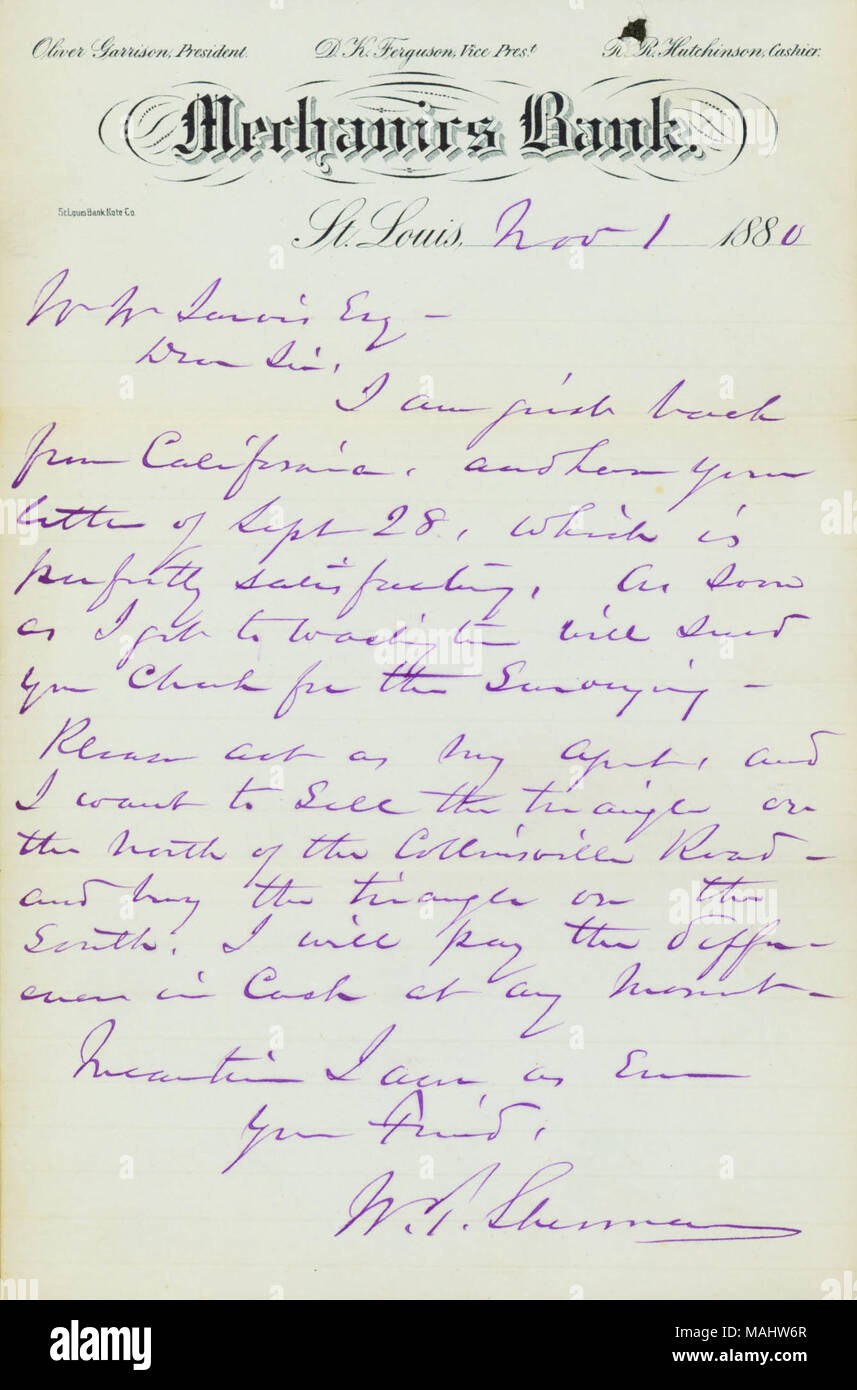 Oliver Garrison, President. D. K. Ferguson, Vice Pres.t R. R. Hutchinson, Cashier.
Mechanics Bank.
St. Louis Bank Note Co.
St. Louis, Nov 1 1880
W W Jarvis Esq —
Dear Sir,
I am just back
from California, and have your
letter of Sept 28, which is
perfectly satisfactory. As soon
as I get to Washington will send
you Check for the Surveying —
Please act as my agent, and
I want to Sell the triangle on
the North of the Collinsville Road —
and buy the triangle on the
South. I will pay the differ-
ence in Cash at any Moment —
Meantime I am, as Ever
Your Friend,
W. T. Sherman
alamy
Image ID: MAHW6R
www.alamy.com